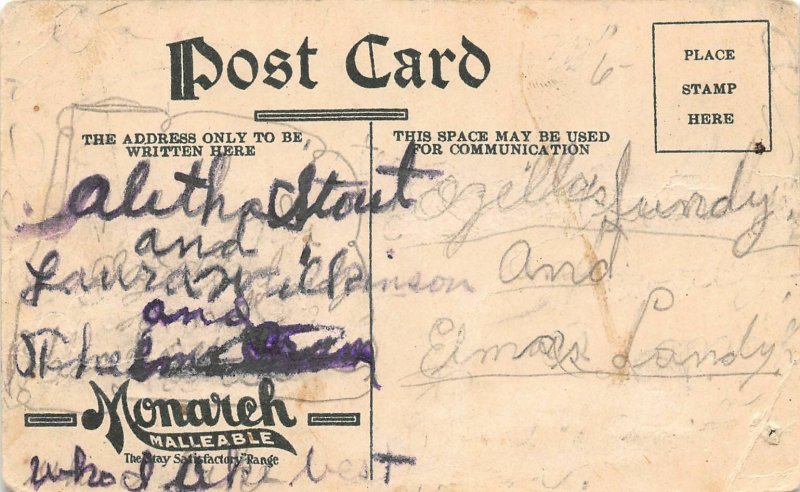 Post Card
PLACE
STAMP
HERE
6-
THE ADDRESS ONLY TO BE
WRITTEN HERE
THIS SPACE MAY BE USED
FOR COMMUNICATION
Aletha Stout
and
Laura Wilkinson
and
Thelma
Ozella
And
Elmer Landy
Monarch
MALLEABLE
The "Stay Satisfactory" Range
who I like best